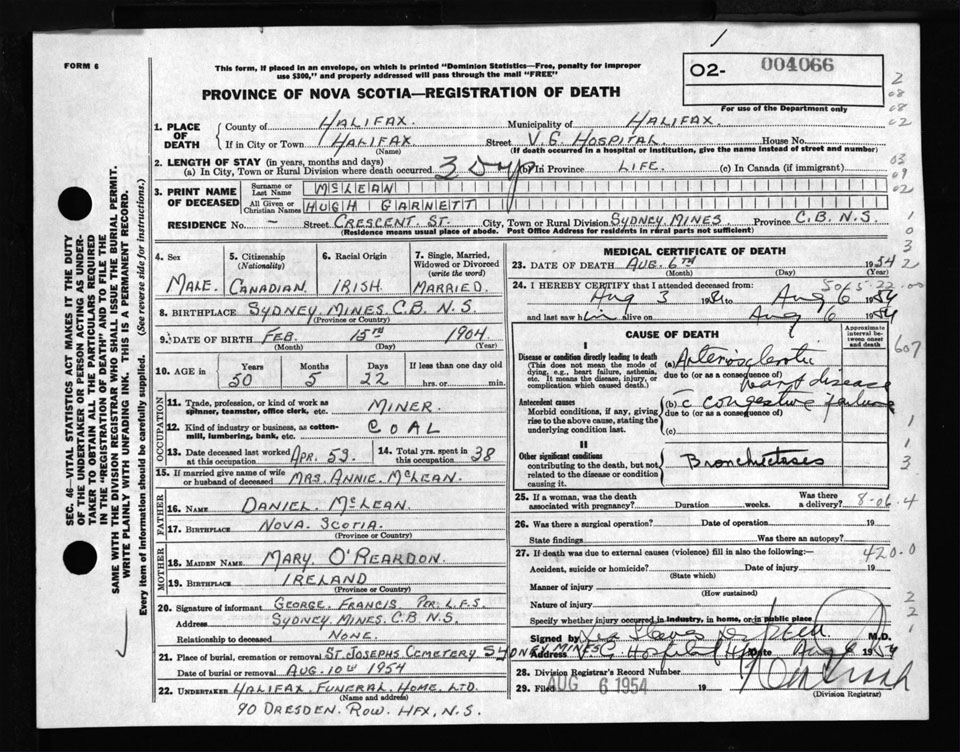 FORM 6
This form, if placed in an envelope, on which is printed "Dominion Statistics—Free, penalty for improper
use $300," and properly addressed will pass through the mail "FREE"
PROVINCE OF NOVA SCOTIA—REGISTRATION OF DEATH
O2- 004066
For use of the Department only
1. PLACE OF DEATH
County of HALIFAX. Municipality of HALIFAX.
If in City or Town HALIFAX Street V.G. HOSPITAL. House No.
(Name) (If death occurred in a hospital or institution, give the name instead of street and number)
2. LENGTH OF STAY (in years, months and days)
(a) In City, Town or Rural Division where death occurred 3 Dys (b) In Province LIFE. (c) In Canada (if immigrant)
3. PRINT NAME OF DECEASED
Surname or Last Name MCLEAN
All Given or Christian Names HUGH GARNETT
RESIDENCE No. - Street CRESCENT ST. City, Town or Rural Division SYDNEY MINES. Province C.B. N.S.
(Residence means usual place of abode. Post Office Address for residents in rural parts not sufficient)
4. Sex MALE.
5. Citizenship (Nationality) CANADIAN.
6. Racial Origin IRISH
7. Single, Married, Widowed or Divorced (write the word) MARRIED.
8. BIRTHPLACE SYDNEY MINES C.B. N.S.
(Province or Country)
9. DATE OF BIRTH FEB. 15TH 1904
(Month) (Day) (Year)
10. AGE in Years 50 Months 5 Days 22 If less than one day hrs. or min.
OCCUPATION
11. Trade, profession, or kind of work as spinner, teamster, office clerk, etc. MINER.
12. Kind of industry or business, as cotton-mill, lumbering, bank, etc. COAL
13. Date deceased last worked at this occupation APR. 53. 14. Total yrs. spent in this occupation 38
15. If married give name of wife or husband of deceased MRS. ANNIE MCLEAN.
FATHER
16. NAME DANIEL MCLEAN.
17. BIRTHPLACE NOVA SCOTIA.
(Province or Country)
MOTHER
18. MAIDEN NAME MARY O'REARDON.
19. BIRTHPLACE IRELAND
(Province or Country)
20. Signature of informant GEORGE FRANCIS PER. L.F.S.
Address SYDNEY MINES. C.B N.S.
Relationship to deceased NONE.
21. Place of burial, cremation or removal ST. JOSEPHS CEMETERY SYDNEY MINES
Date of burial or removal AUG. 10TH 1954
22. UNDERTAKER HALIFAX FUNERAL HOME LTD.
(Name and address)
90 DRESDEN ROW. HFX, N.S.
MEDICAL CERTIFICATE OF DEATH
23. DATE OF DEATH AUG. 6TH 1954
(Month) (Day) (Year)
24. I HEREBY CERTIFY that I attended deceased from:
Aug 3 1954 to Aug 6 1954
and last saw him alive on Aug 6 1954
CAUSE OF DEATH
Approximate interval between onset and death
I
Disease or condition directly leading to death
(This does not mean the mode of dying, e.g., heart failure, asthenia, etc. It means the disease, injury, or complication which caused death.)
(a) Arteriosclerotic
due to (or as a consequence of)
heart disease
Antecedent causes
Morbid conditions, if any, giving rise to the above cause, stating the underlying condition last.
(b) c congestive failure
due to (or as a consequence of)
(c)
II
Other significant conditions
contributing to the death, but not related to the disease or condition causing it.
Bronchiectasis
25. If a woman, was the death associated with pregnancy? Duration weeks. Was there a delivery? 8-06.4
26. Was there a surgical operation? Date of operation 19
State findings Was there an autopsy?
27. If death was due to external causes (violence) fill in also the following:— 420.0
Accident, suicide or homicide? Date of injury 19
(State which)
Manner of injury
(How sustained)
Nature of injury
Specify whether injury occurred in industry, in home, or in public place
Signed by M.D.
Address V.G. Hospital Date Aug 6 1954
28. Division Registrar's Record Number
29. Filed AUG 6 1954 19
(Division Registrar)
SEC. 46—VITAL STATISTICS ACT MAKES IT THE DUTY
OF THE UNDERTAKER OR PERSON ACTING AS UNDER-
TAKER TO OBTAIN ALL THE PARTICULARS REQUIRED
IN THE "REGISTRATION OF DEATH" AND TO FILE THE
SAME WITH THE DIVISION REGISTRAR WHO SHALL ISSUE THE BURIAL PERMIT.
WRITE PLAINLY WITH UNFADING INK. THIS IS A PERMANENT RECORD.
Every item of information should be carefully supplied. (See reverse side for instructions.)
2
08
08
02
03
09
02
1
0
3
2
607
1
1
3
2
2
1